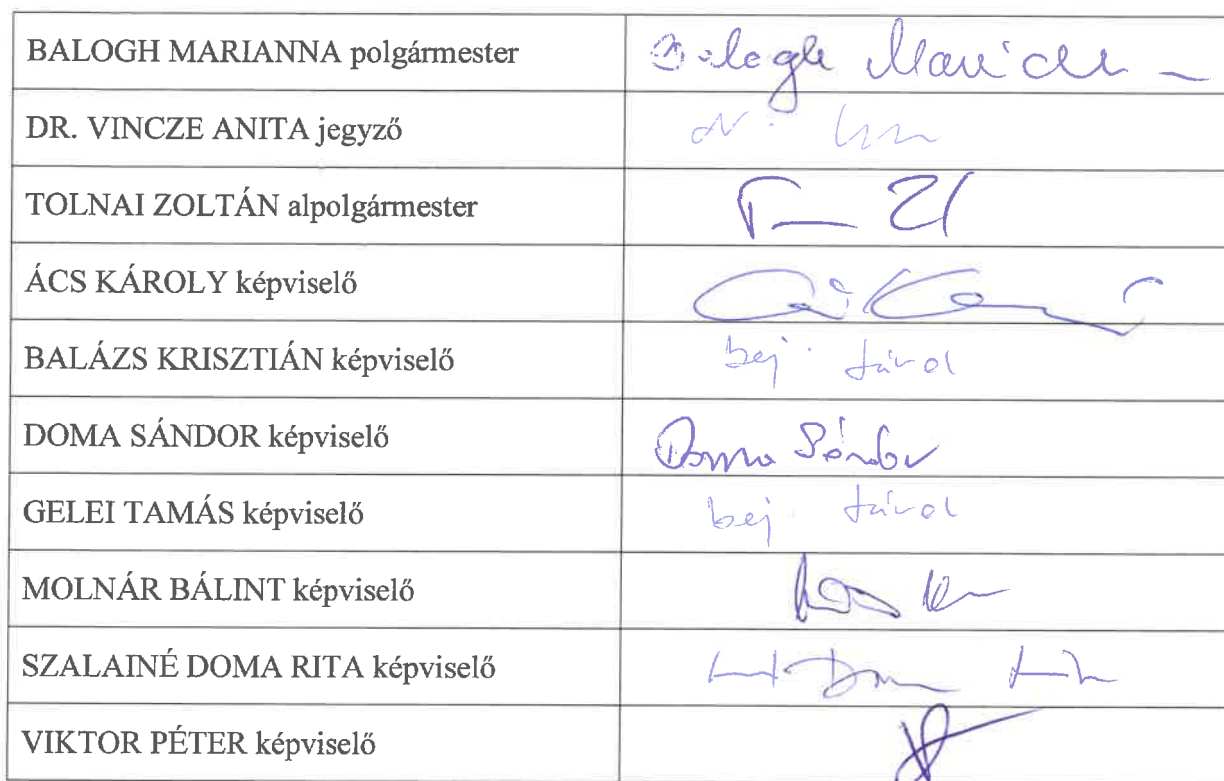 BALOGH MARIANNA polgármester Balogh Marianna
DR. VINCZE ANITA jegyző dr.
TOLNAI ZOLTÁN alpolgármester
ÁCS KÁROLY képviselő
BALÁZS KRISZTIÁN képviselő bej. távol
DOMA SÁNDOR képviselő Doma Sándor
GELEI TAMÁS képviselő bej. távol
MOLNÁR BÁLINT képviselő
SZALAINÉ DOMA RITA képviselő
VIKTOR PÉTER képviselő